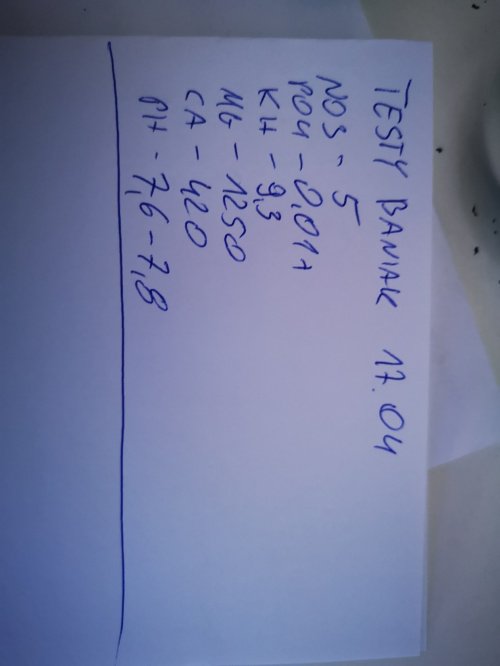 TESTY BANIAK 17.04
NO3 - 5
PO4 - 0,01+
KH - 9,3
MG - 1250
CA - 420
PH - 7,6-7,8